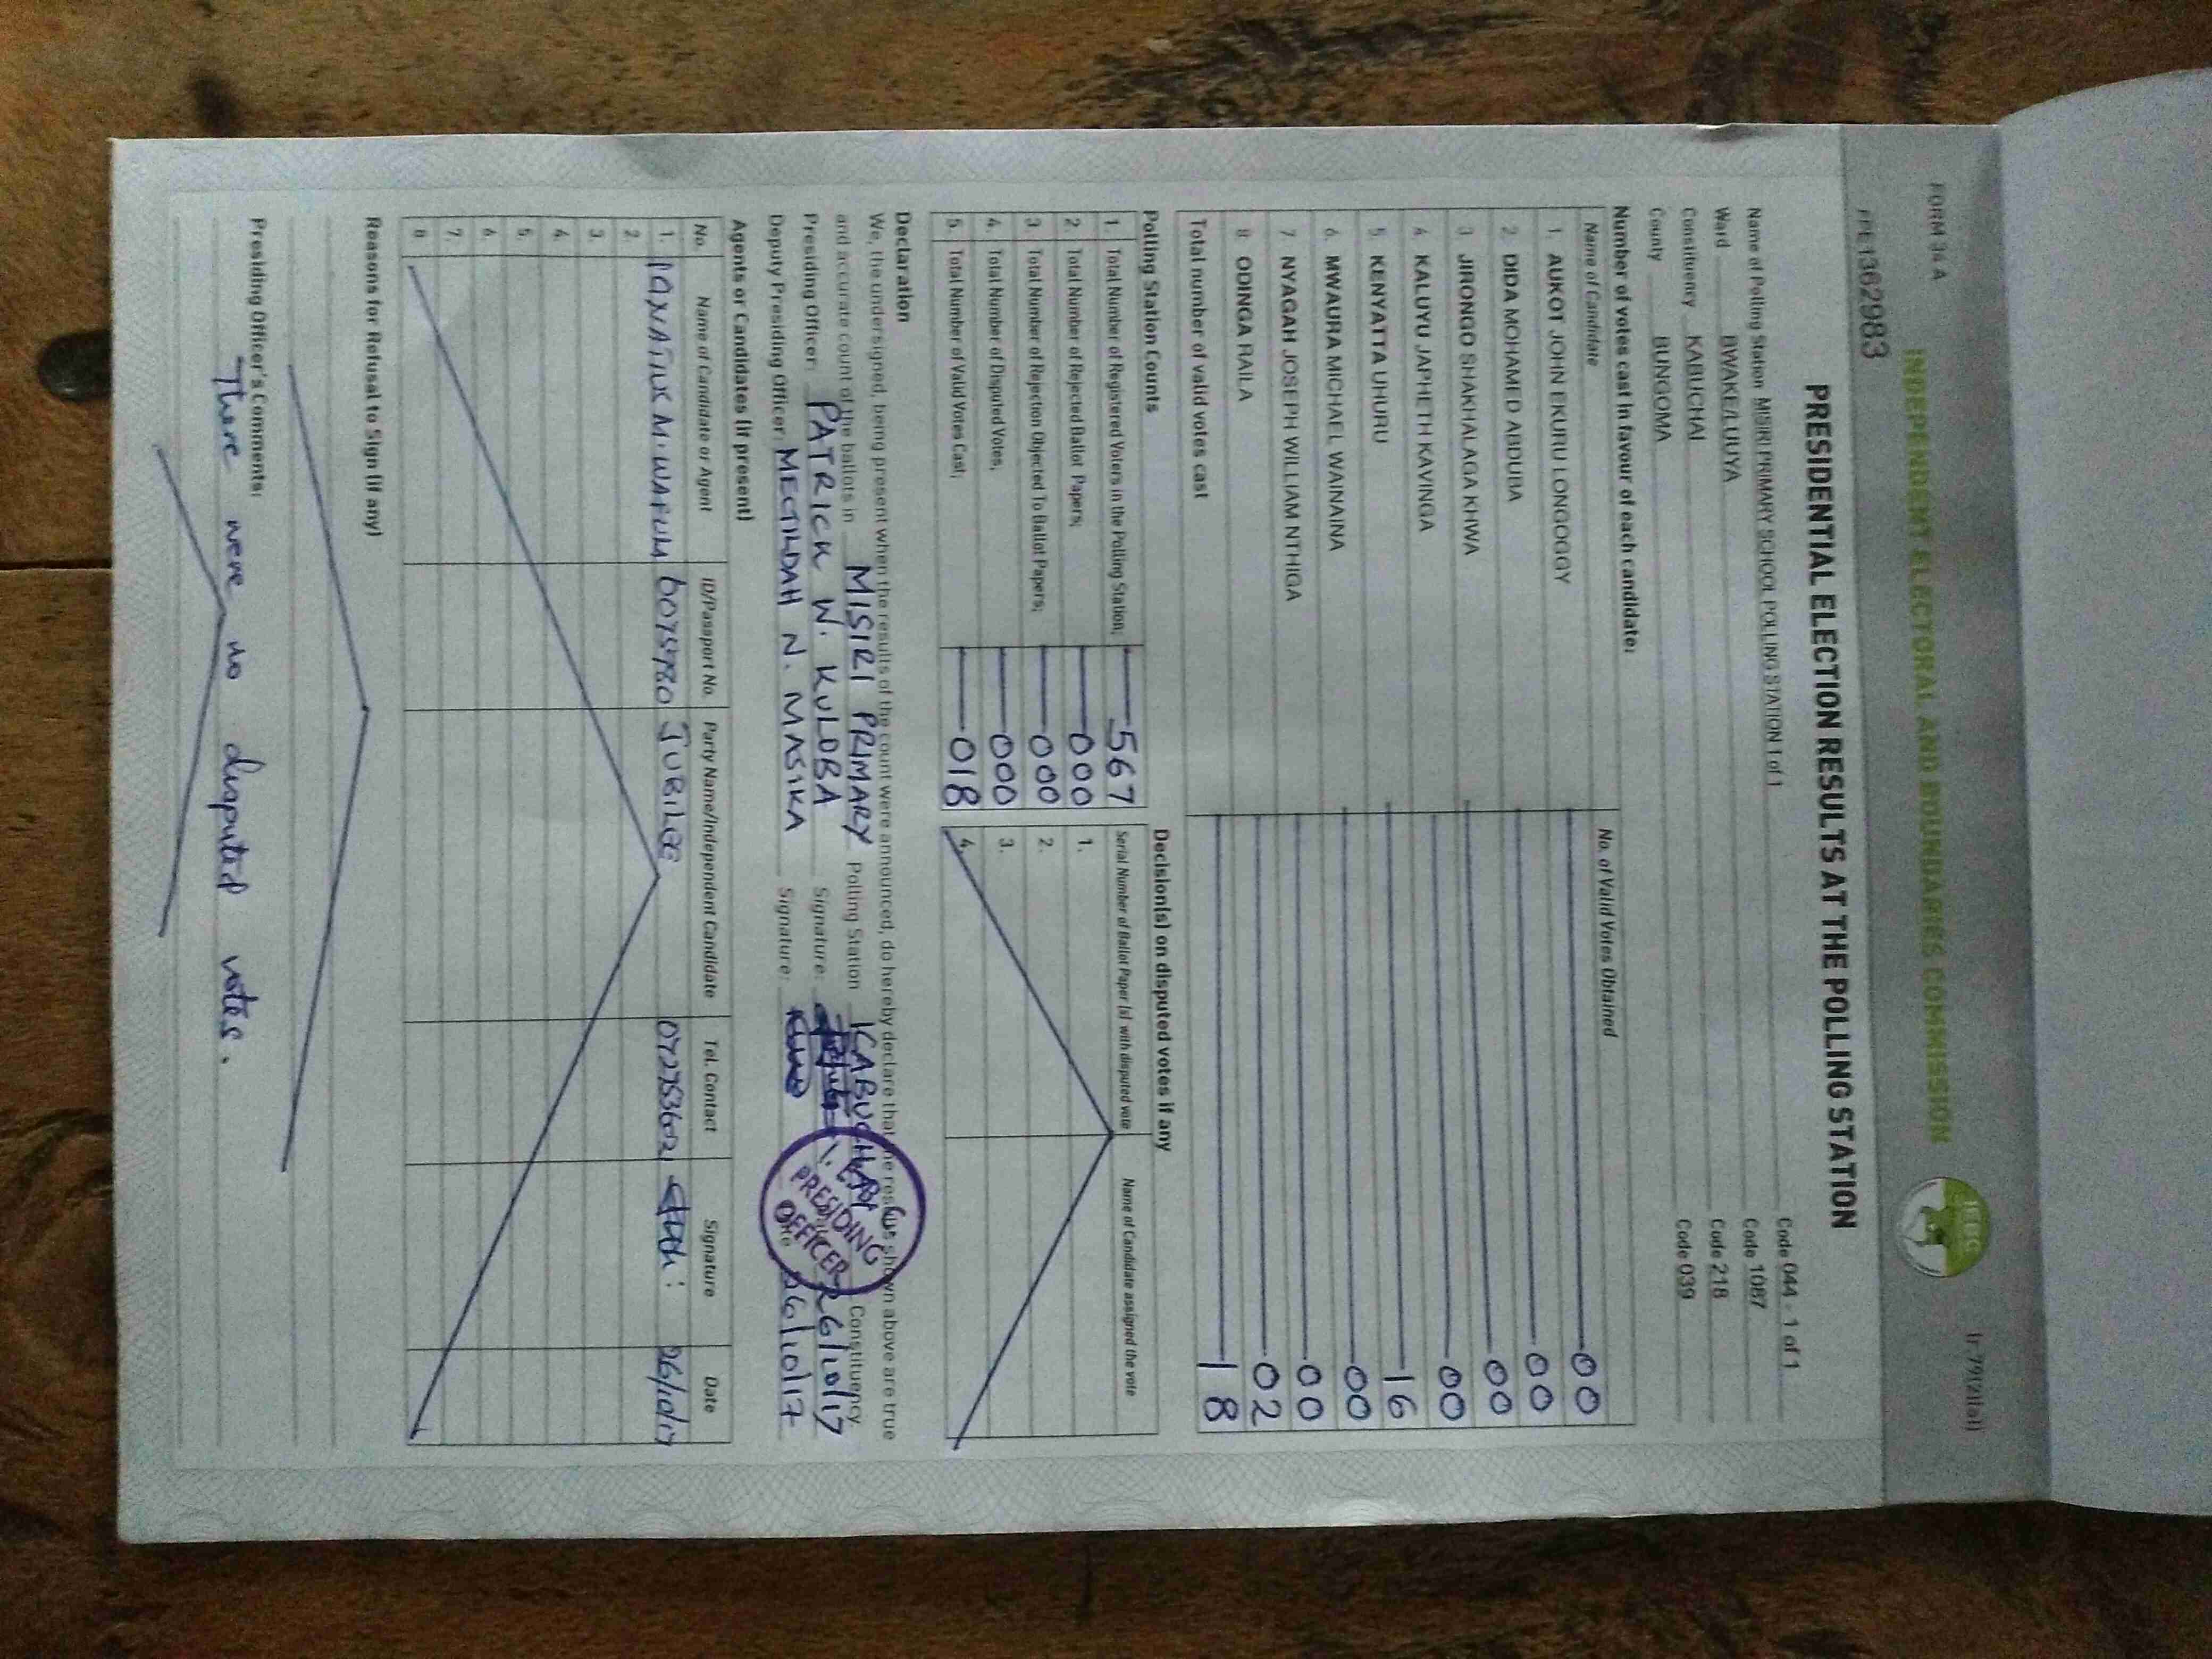 FORM 34 A
INDEPENDENT ELECTORAL AND BOUNDARIES COMMISSION
IEBC
PRESIDENTIAL ELECTION RESULTS AT THE POLLING STATION
Name of Polling Station MISIRI PRIMARY SCHOOL POLLING STATION 1 of 1 Code 044 - 1 of 1
Ward BWAKE/LUUYA Code 1087
Constituency KABUCHAI Code 218
County BUNGOMA Code 039
Number of votes cast in favour of each candidate:
Name of Candidate No. of Valid Votes Obtained
1. AUKOT JOHN EKURU LONGOGGY 00
2. DIDA MOHAMED ABDUBA 00
3. JIRONGO SHAKHALAGA KHWA 00
4. KALUYU JAPHETH KAVINGA 00
5. KENYATTA UHURU 16
6. MWAURA MICHAEL WAINAINA 00
7. NYAGAH JOSEPH WILLIAM NTHIGA 00
8. ODINGA RAILA 02
Total number of valid votes cast 18
Polling Station Counts
1. Total Number of Registered Voters in the Polling Station; 567
2. Total Number of Rejected Ballot Papers; 000
3. Total Number of Rejection Objected To Ballot Papers; 000
4. Total Number of Disputed Votes; 000
5. Total Number of Valid Votes Cast; 018
Decision(s) on disputed votes if any
Serial Number of Ballot Paper (s) with disputed vote Name of Candidate assigned the vote
1.
2.
3.
4.
Declaration
We, the undersigned, being present when the results of the count were announced, do hereby declare that the results shown above are true
and accurate count of the ballots in MISIRI PRIMARY Polling Station KABUCHAI Constituency
Presiding Officer: PATRICK W. KULOBA Signature: 26/10/17
Deputy Presiding Officer: MECTILDAH N. MASIKA Signature: Date 26/10/17
PRESIDING
OFFICER
Agents or Candidates (if present)
No. Name of Candidate or Agent ID/Passport No. Party Name/Independent Candidate Tel. Contact Signature Date
1. JUBILEE 26/10/17
2.
3.
4.
5.
6.
7.
8.
Reasons for Refusal to Sign (if any)
Presiding Officer's Comments:
There were no disputed votes.